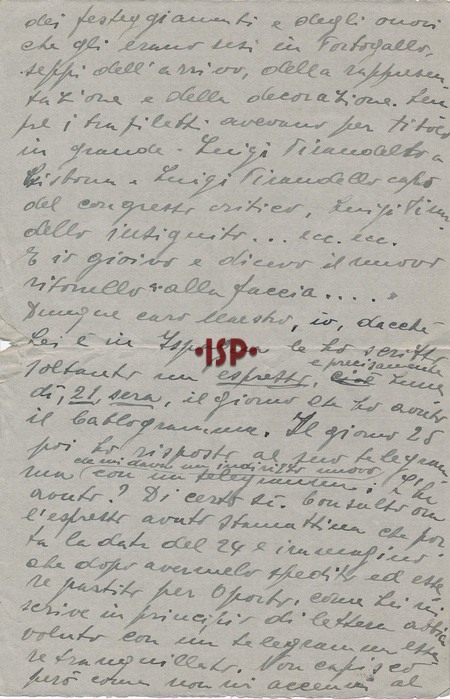 dei festeggiamenti e degli onori
che gli erano resi in Portogallo,
seppi dell'arrivo, della rappresen-
tazione e della decorazione. Sem
pre i trafiletti avevano per titolo
in grande - Luigi Pirandello a
Lisbona e Luigi Pirandello capo
del congresso critico, Luigi Piran
dello insignito... ecc. ecc.
E io gioivo e dicevo il nuovo
ritornello "alla faccia .... "
Dunque caro Maestro, io, dacchè
Lei è in le ho scritto
soltanto un espresso, e precisamente lune
dì, 21 sera, il giorno che ho avuto
il cablogramma. Il giorno 25
poi ho risposto al suo telegram
ma che mi dava un indirizzo nuovo, con un telegramma; l'ha
avuto? Di certo sì. Consulto ora
l'espresso avuto stamattina che por
ta la data del 24 e immagino
che dopo avermelo spedito ed esse
re partito per Oporto, come Lei mi
scrive in principio di lettera, abbia
voluto con un telegramma esse
re tranquillato. Non capisco
però come non mi accenni al
•ISP•